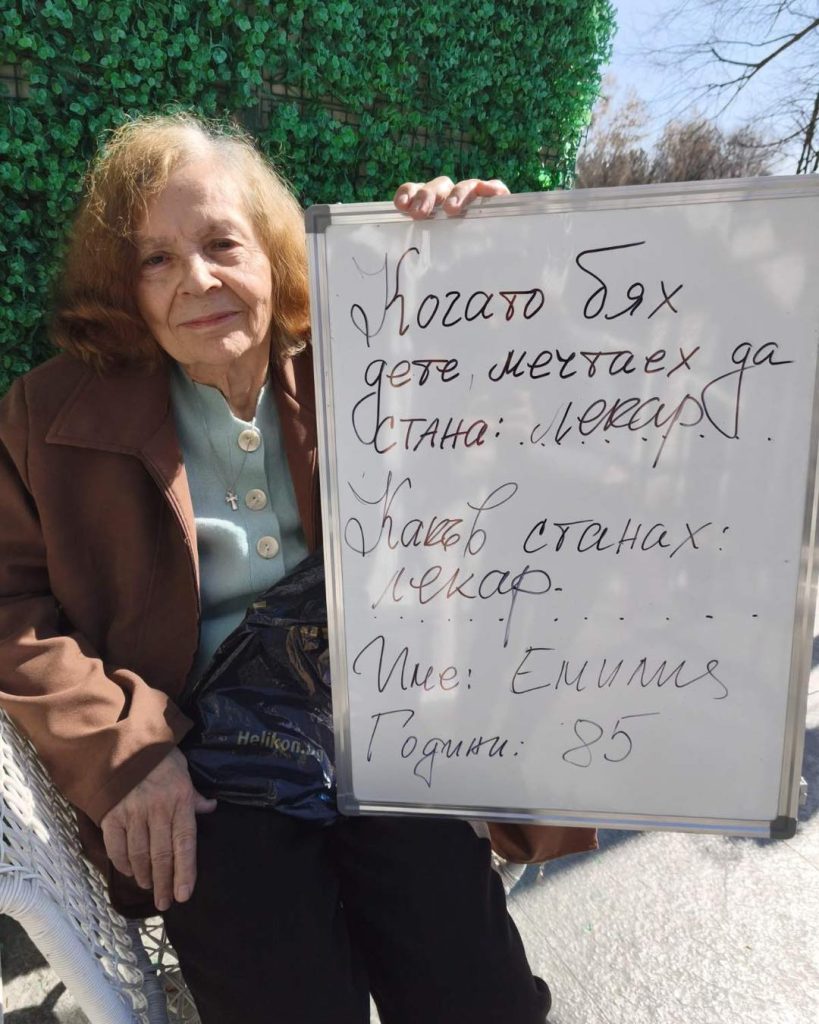 Когато бях
дете, мечтаех да
стана: лекар
Какъв станах:
лекар.
Име: Емилия
Години: 85
Helikon.bg